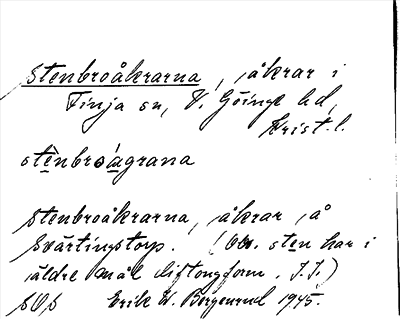 Stenbroåkrarna, åkrar i
Finja sn, V. Göinge hd,
Krist. l.
stènbroágrana
Stenbroåkrarna, åkrar å
Svärtingstorp. (Obs. sten har i
äldre mål diftongform. I.I.)
SOS Erik W. Bergenrud 1945.